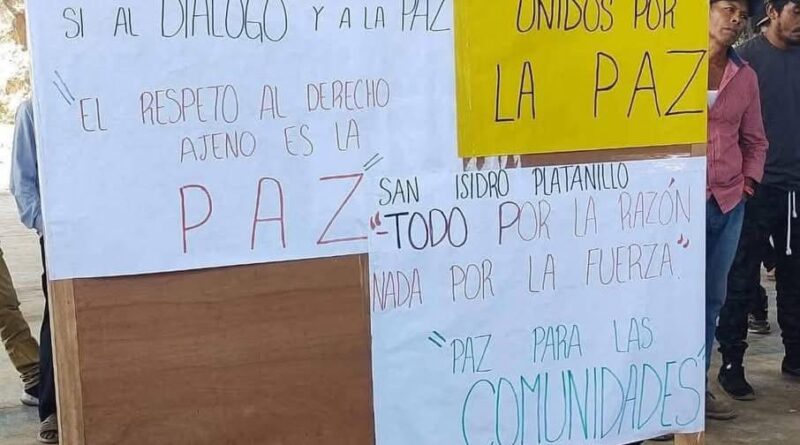 SI AL DIALOGO Y A LA PAZ
"EL RESPETO AL DERECHO
AJENO ES LA
PAZ"
UNIDOS POR
LA PAZ
SAN ISIDRO PLATANILLO
"-TODO POR LA RAZÓN
NADA POR LA FUERZA."
"PAZ PARA LAS
COMUNIDADES"